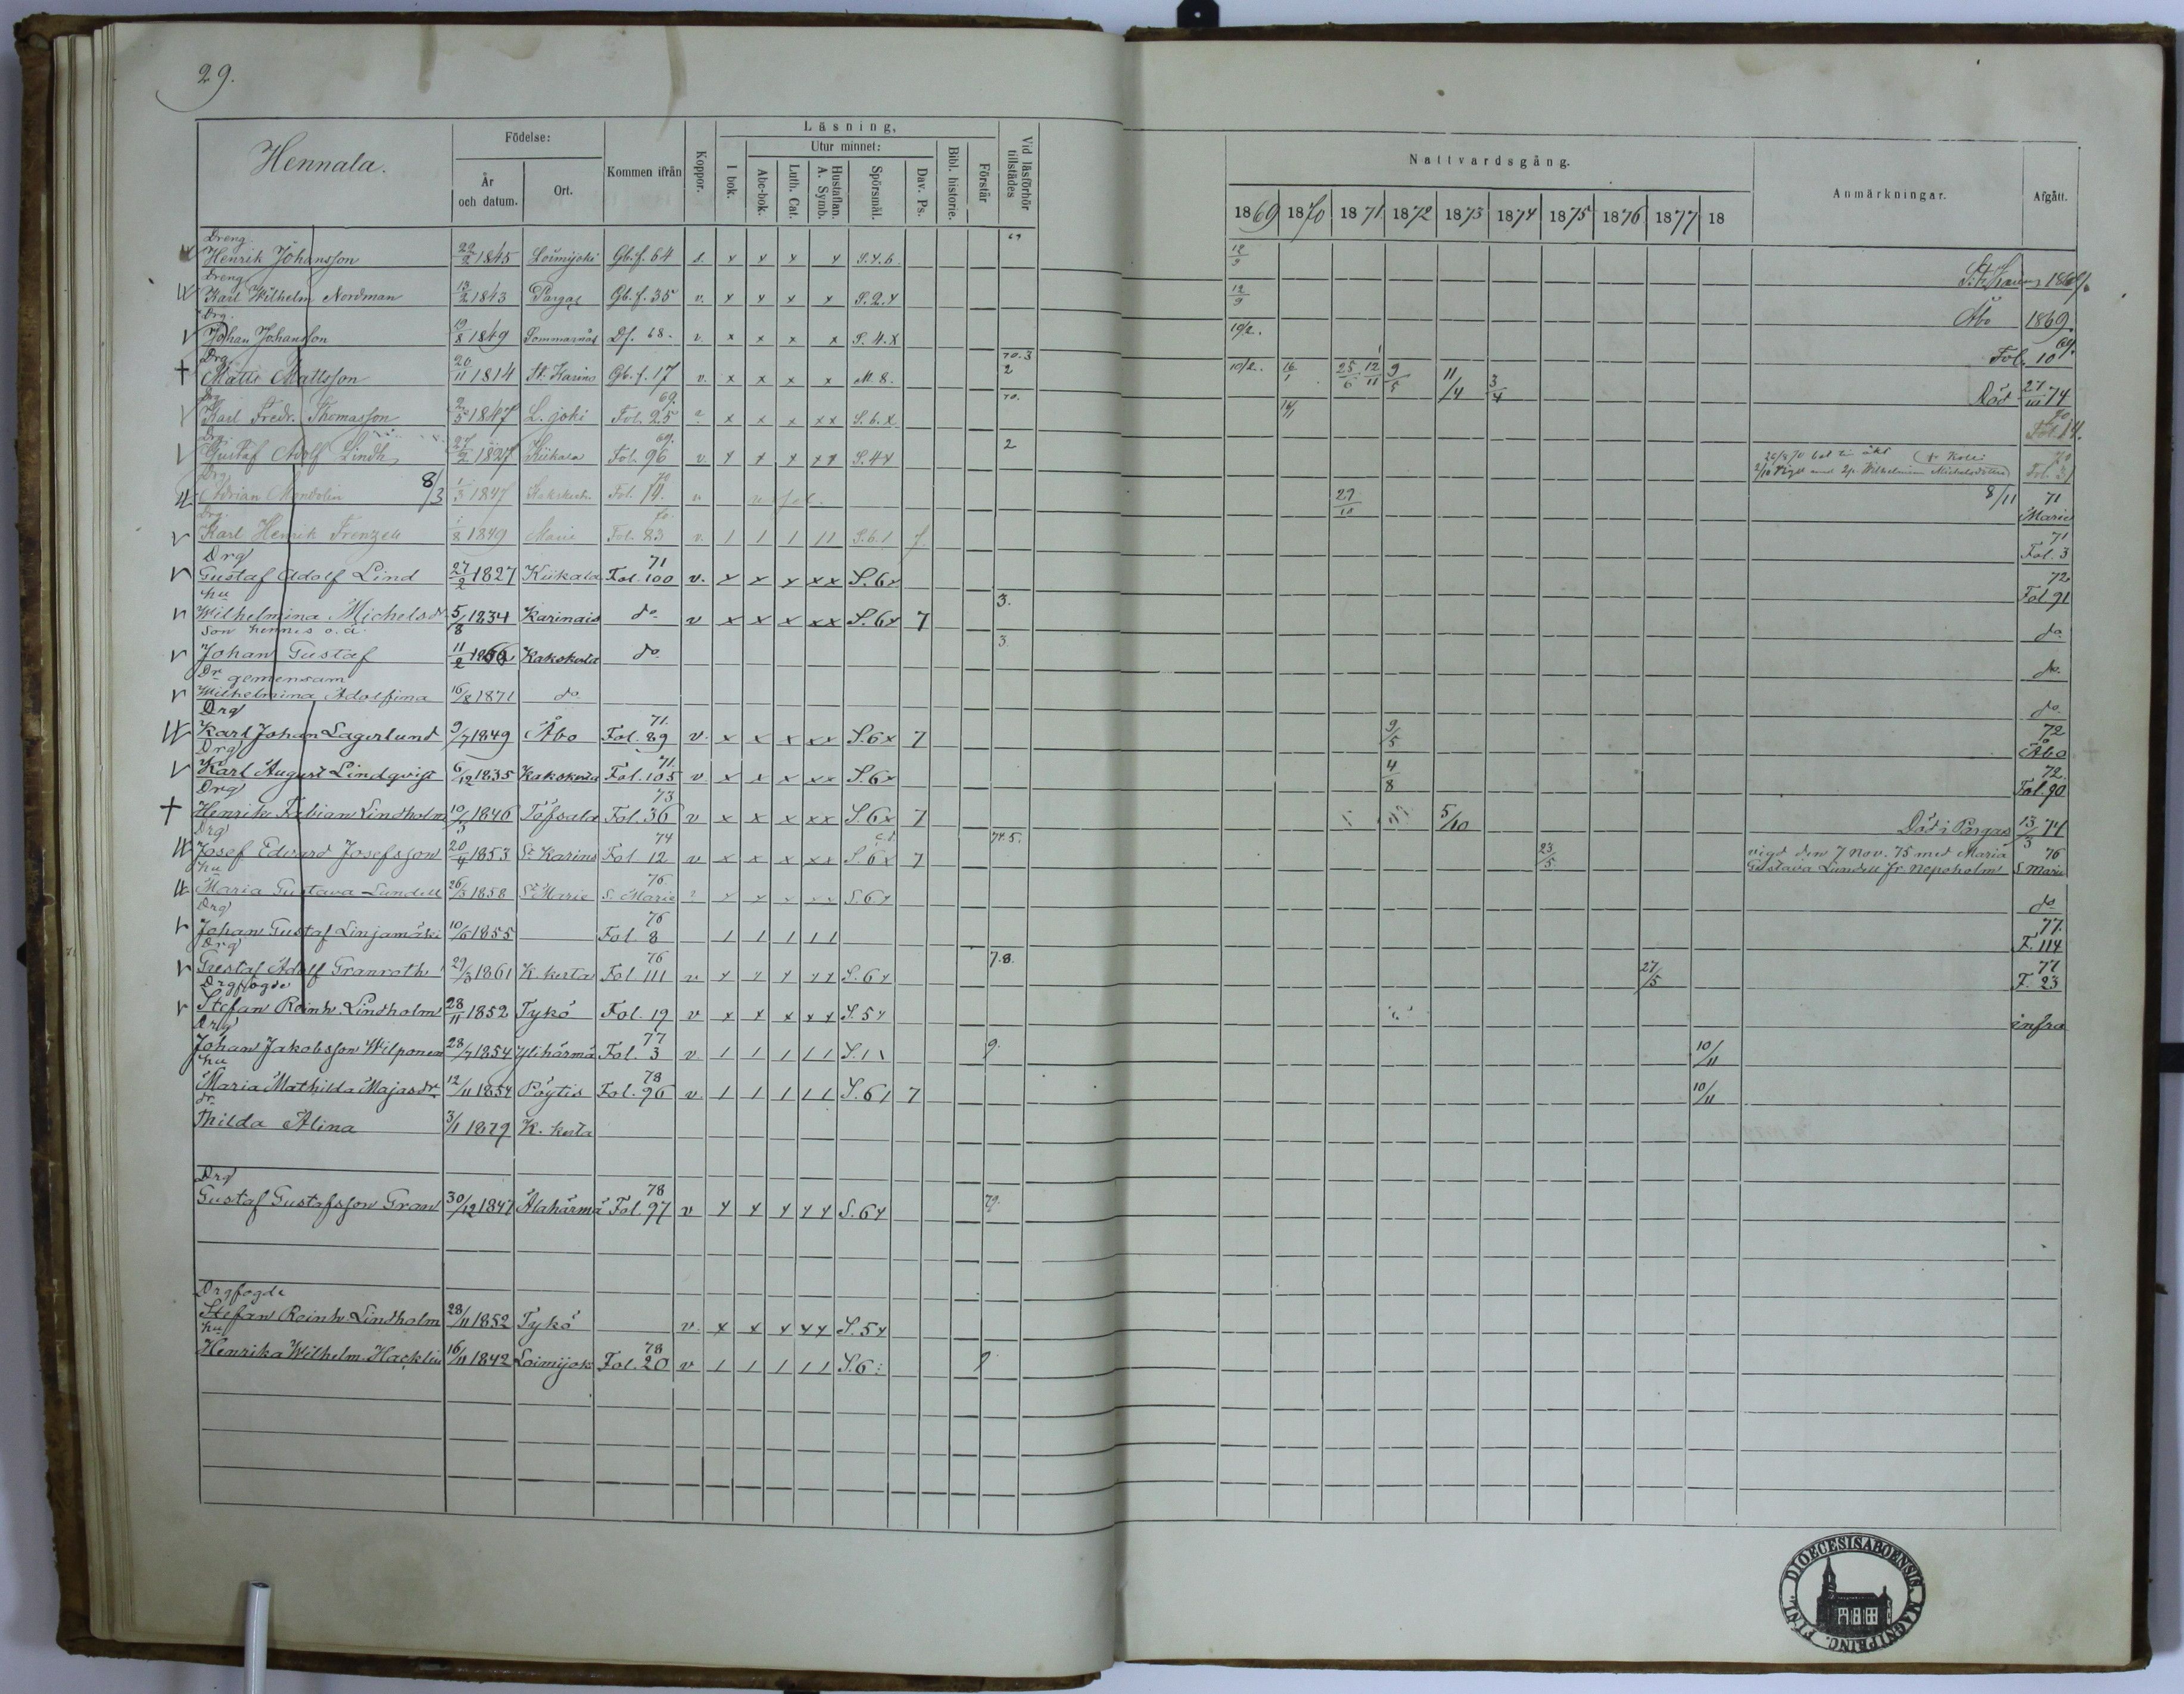 29.
Hennala.
Födelse:
År och datum.
Ort.
Kommen ifrån
Koppor.
Läsning,
I bok.
Utur minnet:
Abc-bok.
Luth. Cat.
Hustaflan. A. Symb.
Spörsmål.
Dav. Ps.
Bibl. historie.
Förstår
Vid läsförhör tillstädes
Nattvardsgång.
1869 1870 1871 1872 1873 1874 1875 1876 1877 18
Anmärkningar.
Afgått.
Dreng
Henrik Johansson 22/2 1845 Loimijoki Gb. f. 64 x x x x S. 4. 6 69 12/9
Dreng
Karl Wilhelm Nordman 13/2 1843 Pargas Gb. f. 35 v. x x x x S. 2. x 12/9 Åbo 1869.
Drg.
Johan Johansson 19/8 1849 Df. 68. v. x x x x S. 4. x 10/2. Fol. 10 69.
Drg
Matts Mattsson 20/11 1814 St. Karins Gb. f. 17 v. x x x x M. 8. 70. 3 2 10/2. 16/1 25/6 12/11 9/5 11/4 3/4 Död 74
Drg
Karl Fredr. Thomasson 2/5 1847 L. joki 69. Fol. 25 x x x x x S. 6. x 70. 70 Fol. 14.
Drg.
Gustaf Adolf Lindh 27/2 1827 Kiikala 69. Fol. 96 v. x x x x x S. 4 x 2 70 Fol. 31
Drg
Adrian Mondolin 8/3 1/3 1847 70 Fol. 14. v. 29/10 8/11 71 Marie
Drg.
Karl Henrik Frenzell 1/8 1849 Marie 70. Fol. 83 v. 1 1 1 1 1 S. 6. 1 7 71 Fol. 3
Drg
Gustaf Adolf Lind 27/2 1827 Kiikala 71 Fol. 100 v. x x x x x S. 6 x 72 Fol 91
hu
Wilhelmina Michelsdr 5/8 1834 Karinais do v x x x x x S. 6 x 7 3. do
Son hennes o. ä.
Johan Gustaf 11/2 1866 Kakskerta do 3. do
Dr gemensam
Wilhelmina Adolfina 16/8 1871 do do
Drg
Karl Johan Lagerlund 9/7 1849 Åbo 71. Fol. 89 v. x x x x x S. 6 x 7 9/5 72 Åbo
Drg
Karl August Lindqvist 6/12 1835 Kakskerta 71. Fol. 105 v x x x x x S. 6 x 4/8 72. Fol. 90
Drg
Henrik Fabian Lindholm 10/5 1846 Töfsala 73 Fol. 36 v x x x x x S. 6 x 7 5/10 Död i Pargas 13/3 74
Drg
Josef Edvard Josefsson 20/4 1853 St Karins 74 Fol. 12 v x x x x x S. 6 x 7 74. 5. 23/5 vigd den 7 Nov. 75 med Maria Gustava Lundell fr. Nepeholm 76 S. Marie
hu
Maria Gustava Lundell 26/3 1858 St Marie 76. S. Marie ? x x x x x S. 6 x do
Drg
Johan Gustaf Linjamäki 10/6 1855 76 Fol. 8 1 1 1 1 1 77. F. 114
Drg
Gustaf Adolf Granroth 29/3 1861 K. kerta 76 Fol 111 v x x x x x S. 6 x 7. 8. 27/5 77 F. 23
Drgfogde
Stefan Reinh. Lindholm 28/11 1852 Tykö Fol. 19 v x x x x x S. 5 x infra
Drg
Johan Jakobsson Wilponen 28/7 1854 Ylihärmä 77 Fol. 3 v. 1 1 1 1 1 S. 1 \ 9. 10/11
hu
Maria Mathilda Majasdr 12/11 1854 Pöytis 78 Fol. 96 v. 1 1 1 1 1 S. 6 1 7 10/11
dr
Thilda Alina 3/1 1879 K. kerta
Drg
Gustaf Gustafsson Gran 30/12 1847 Alahärmä 78 Fol. 97 v x x x x x S. 6 x 79.
Drgfogde
Stefan Reinh. Lindholm 28/11 1852 Tykö v. x x x x x S. 5 x
hu
Henrika Wilhelm. Hacklin 16/11 1842 Loimijok 78 Fol. 20 v 1 1 1 1 1 S. 6 9
DIOECESIS ABOENSIS. MAGNI PRINC. FINL.